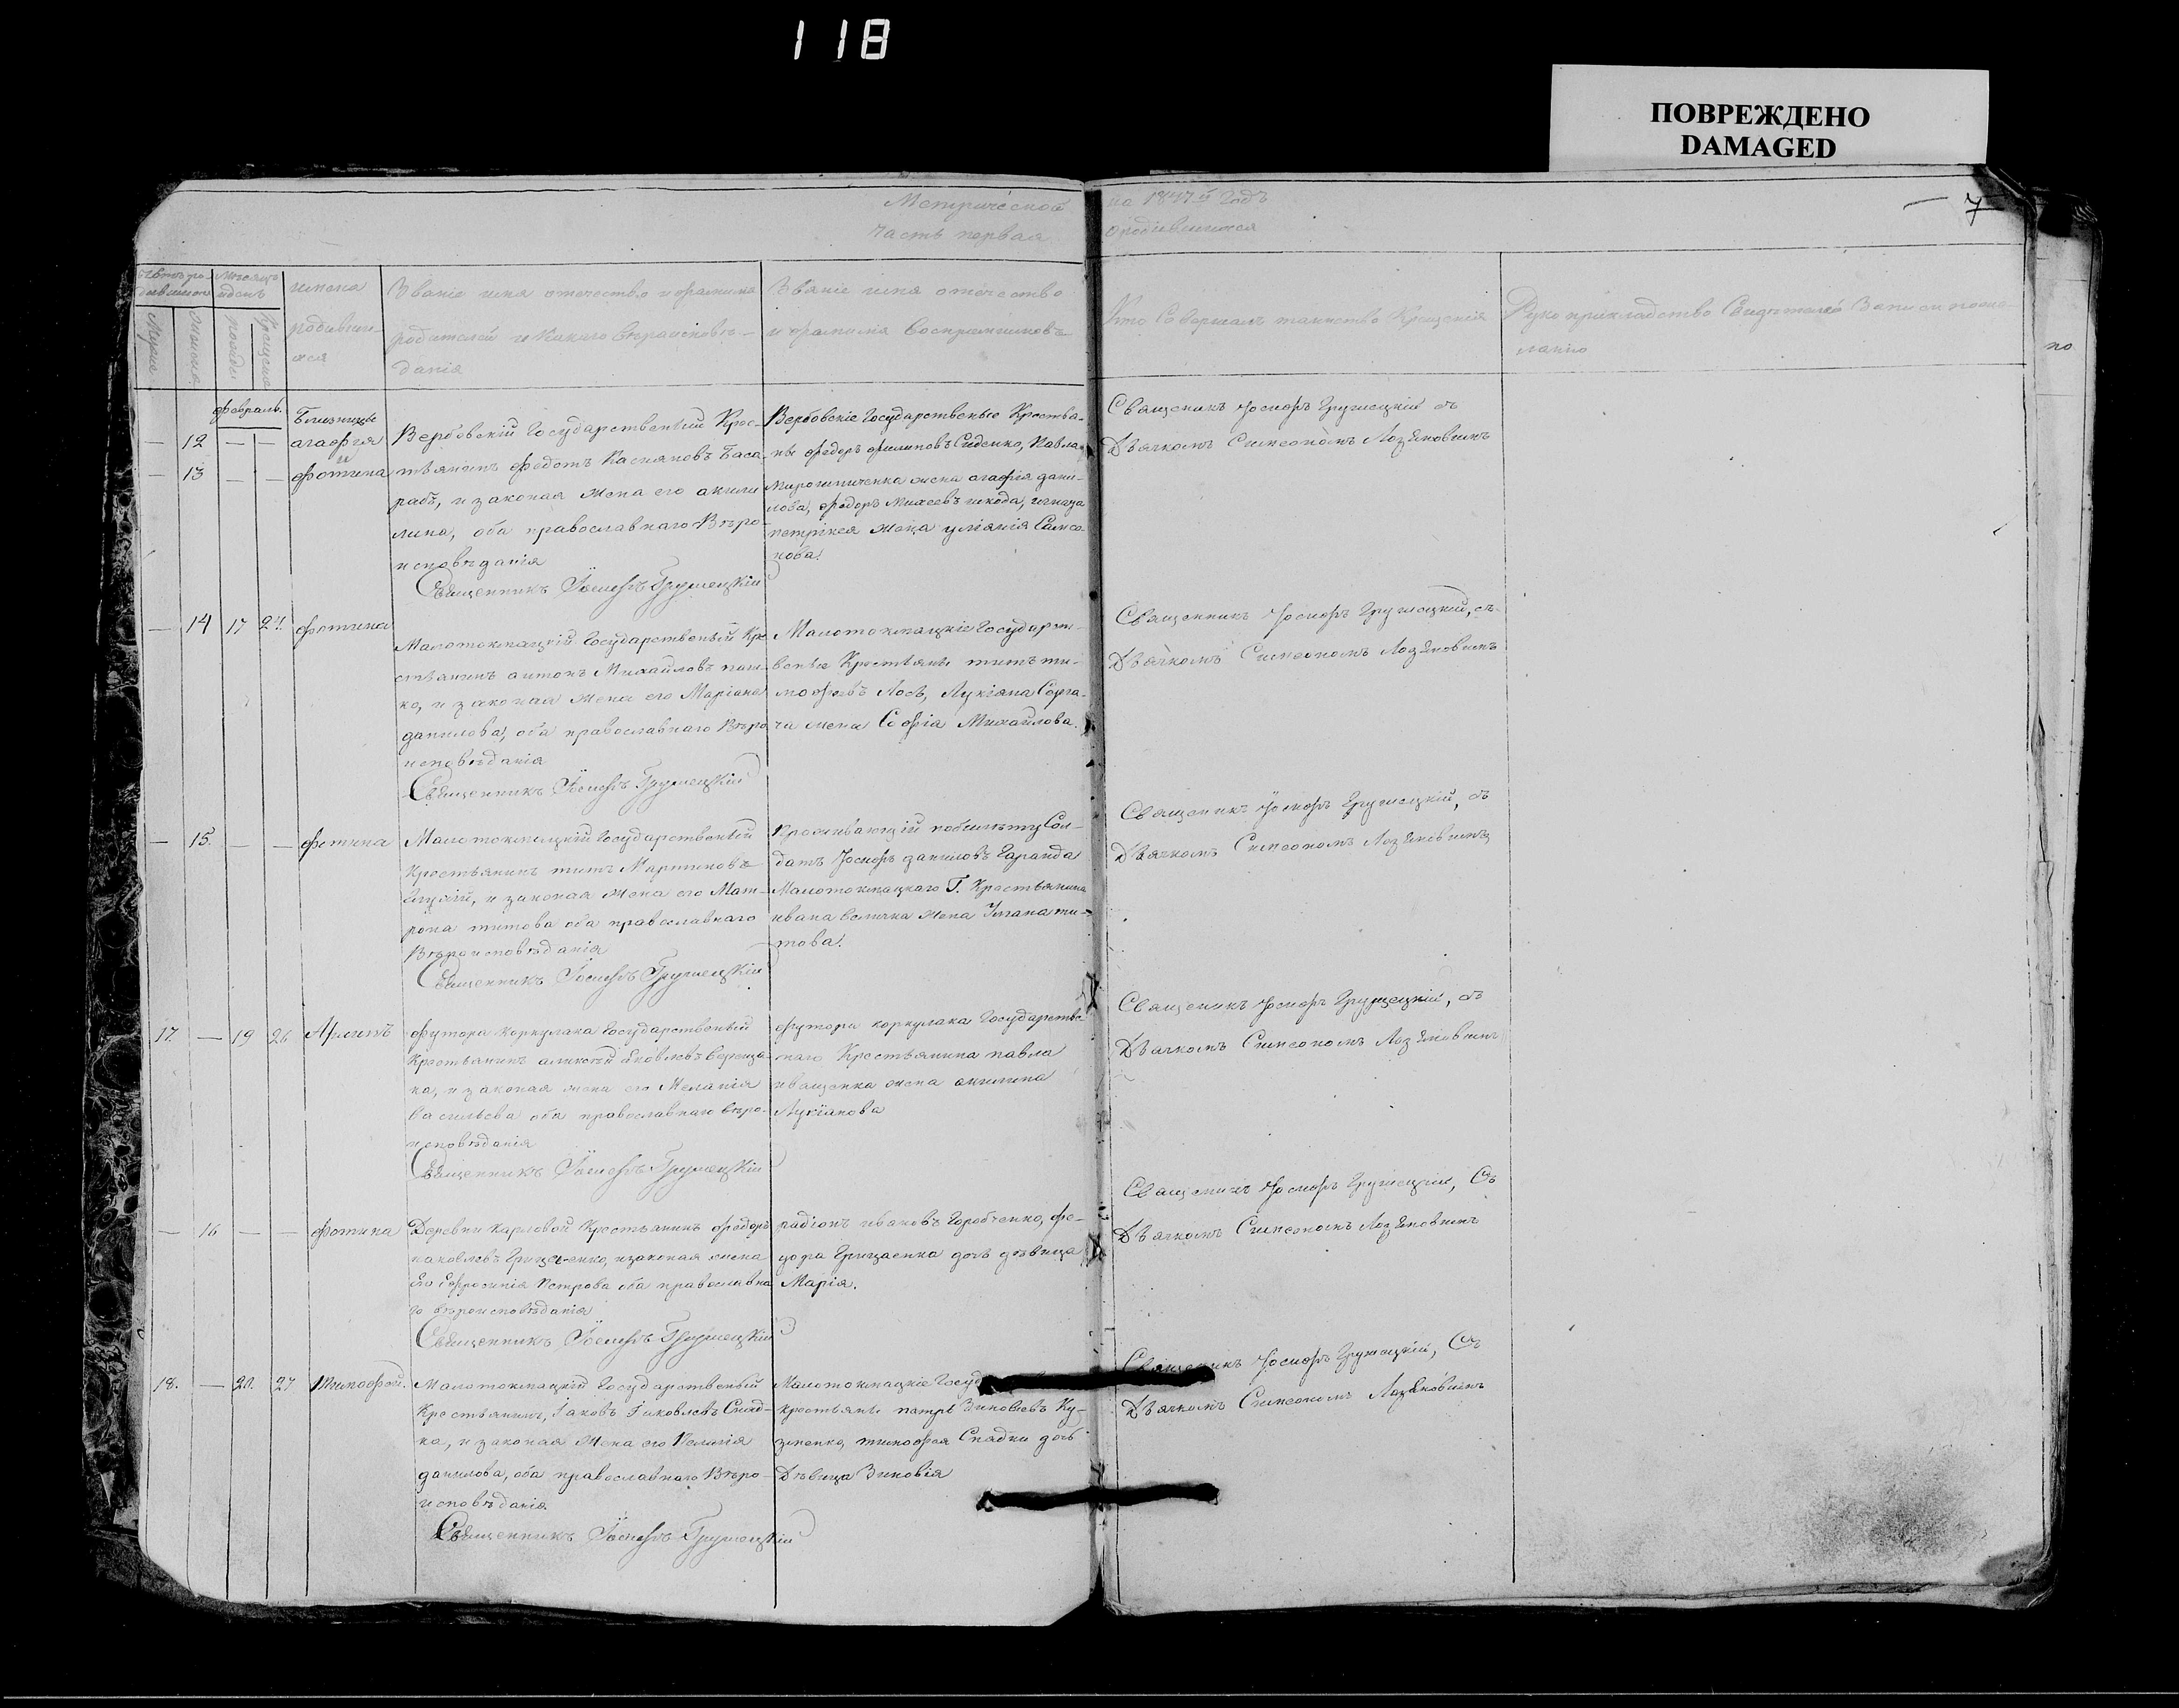 118
ПОВРЕЖДЕНО
DAMAGED
Метрической на 1847й Годъ
часть первая о родившихся
7
Имена родивши-
хся
Званіе имя отечество и фамилиа
родителей и Какого вѣроисповѣ-
данія
Званіе имя отечество
и фамилиа Воспріемниковъ
Кто Совершалъ таинство Крещенія
Рукоприкладство Свидѣтелей Записи поже-
ланію
Мужеска
Женска
Крещенія
по
Февраль.
12 — —
13 — —
Близницы
агафія
и
фотина
Вербовскій Государственный Крес-
тьянинъ федотъ Касяновъ Баса
рабъ, и законая жена его акили
лина, оба православнаго Вѣро-
исповѣданія
Священникъ Іосифъ Гружецкій
Вербовскіе Государственые Крестья-
ны федоръ филиповъ Сиденко, Павла
Мирошниченка жена агафія дани-
лова, федоръ Михеевъ шкода,
жена уліянія Самсо-
нова.
Священикъ Іосифъ Гружецкій съ
Дьячкомъ Симеономъ Лозяновимъ
— 14 17 24 фотина
Малотокмацкій Государственый Кре
стьянинъ антонъ Михайловъ паш-
ко, и законая жена его Маріана
данилова, оба православнаго Вѣро
исповѣданія
Священникъ Іосифъ Гружецкій
Малотокмацкіе Государст-
веные Крестьяны титъ ти-
мофѣевъ Лось, Лукіяна Сорга-
ча жена Софіа Михайлова.
Священникъ Іосифъ Гружецкій, съ
Дьячкомъ Симеономъ Лозяновимъ
— 15. — — фотина
Малотокмацкій Государственый
Крестьянинъ титъ Мартиновъ
и законая жена его Мат-
рона титова оба православнаго
Вѣроисповѣданія
Священникъ Іосифъ Гружецкій
Проживающій побилету Сол-
датъ Іосифъ даниловъ Гаранда
Малотокмацкаго Г. Крестьянина
ивана величка жена Уліана ти-
това.
Священикъ Іосифъ Гружецкій, съ
Дьячкомъ Симеономъ Лозяновимъ
17. — 19 26
футора коркулака Государственый
Крестьянинъ аликсѣй Яковлевъ Верещa-
ка, и законая жена его Меланія
Васильева оба православнаго вѣро-
исповѣданія
Священникъ Іосифъ Гружецкій
футора коркулака Государстве
наго Крестьянина павла
иващенка жена акилина
Лукіанова
Священикъ Іосифъ Гружецкій, съ
Дьячкомъ Симеономъ Лозяновимъ
— 16 — — фотина
Деревни Карловой Крестьянинъ федоръ
яковлевъ Грицаенко, изаконая жена
Его Ефросинія Петрова оба православна
го вѣроисповѣданія
Священникъ Іосифъ Гружецкій
радіонъ ивановъ Горобченко, фе-
дора Грицаенка дочь дѣвица
Марія.
Священикъ Іосифъ Гружецкій, Съ
Дьячкомъ Симеономъ Лозяновимъ
18. — 20. 27 тимофей.
Малотокмацкій Государственый
Крестьянинъ, Іаковъ Іаковлевъ Снад-
ка, и законая жена его Пелагія
данилова, оба православнаго Вѣро-
исповѣданія
Священникъ Іосифъ Гружецкій
Малотокмацкіе Госуд
крестьяны патръ Зиновіевъ Ку-
зменко, тимофея Снадки дочь
Дѣвица Зиновія
Священикъ Іосифъ Гружецкій, Съ
Дьячкомъ Симеономъ Лозяновимъ